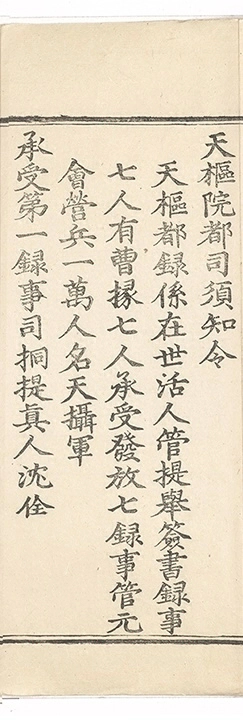 天樞院都司須知令
天樞都録係在世活人管提舉簽書録事
七人有曹掾七人承受發放七録事管元
會營兵一萬人名天攝軍
承受第一録事司捅提真人沈佺